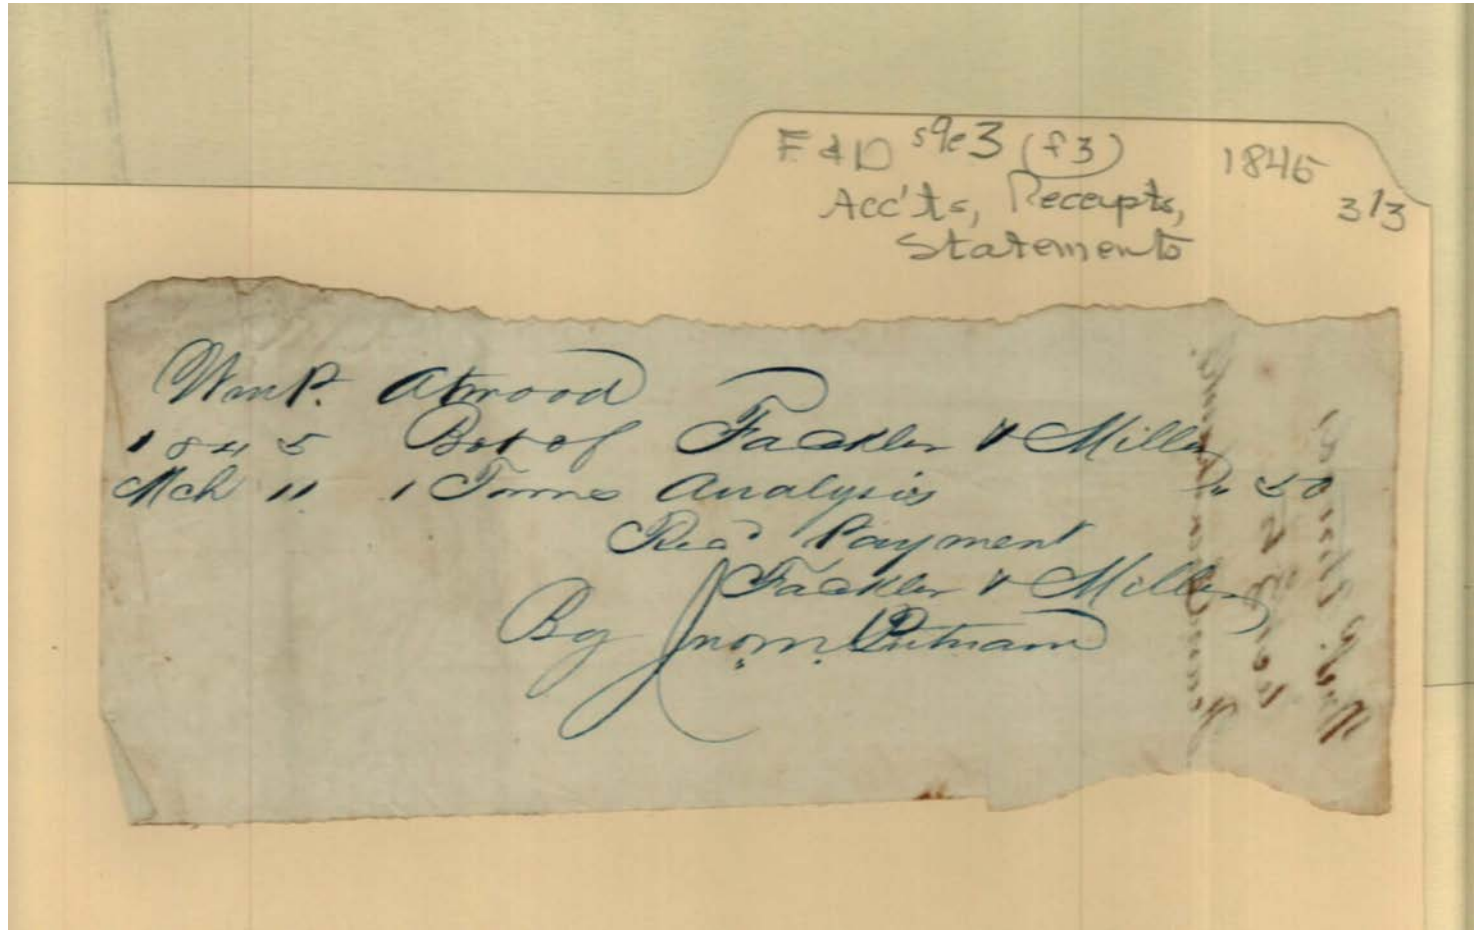 F & D s9e3 (f3) 1845
Acc'ts, Receipts, 3/3
Statements
Wm P. Atwood
1845 Bot of Fackler & Miller
Mch 11 1 Towns Analysis " 50
Recd Payment
Fackler & Miller
By Jno. M. Putnam